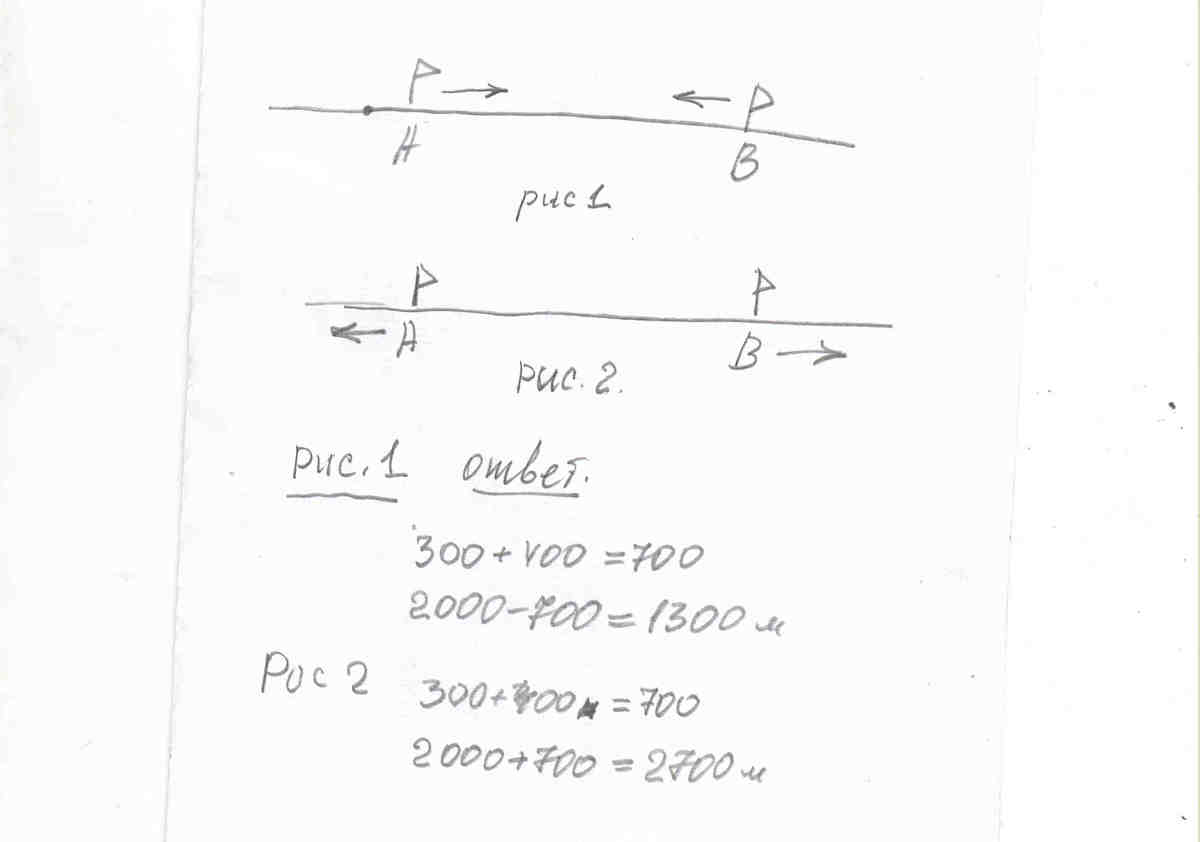 A B
рис 1
A B
рис. 2.
рис. 1 ответ.
300 + 400 = 700
2000 - 700 = 1300 м
Рис 2 300 + 400 = 700
2000 + 700 = 2700 м